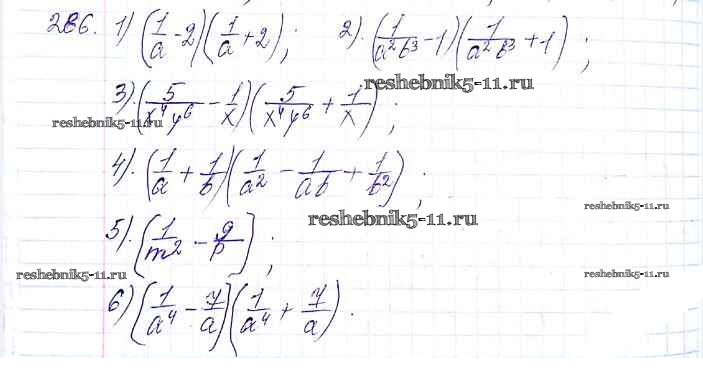 286. 1) (1/a - 2)(1/a + 2); 2). (1/a²b³ - 1)(1/a²b³ + 1);
reshebnik5-11.ru
3). (5/x⁴y⁶ - 1/x)(5/x⁴y⁶ + 1/x);
reshebnik5-11.ru
4). (1/a + 1/b)(1/a² - 1/ab + 1/b²);
reshebnik5-11.ru
reshebnik5-11.ru
5). (1/m² - 9/p);
reshebnik5-11.ru
reshebnik5-11.ru
6) (1/a⁴ - 7/a)(1/a⁴ + 7/a).